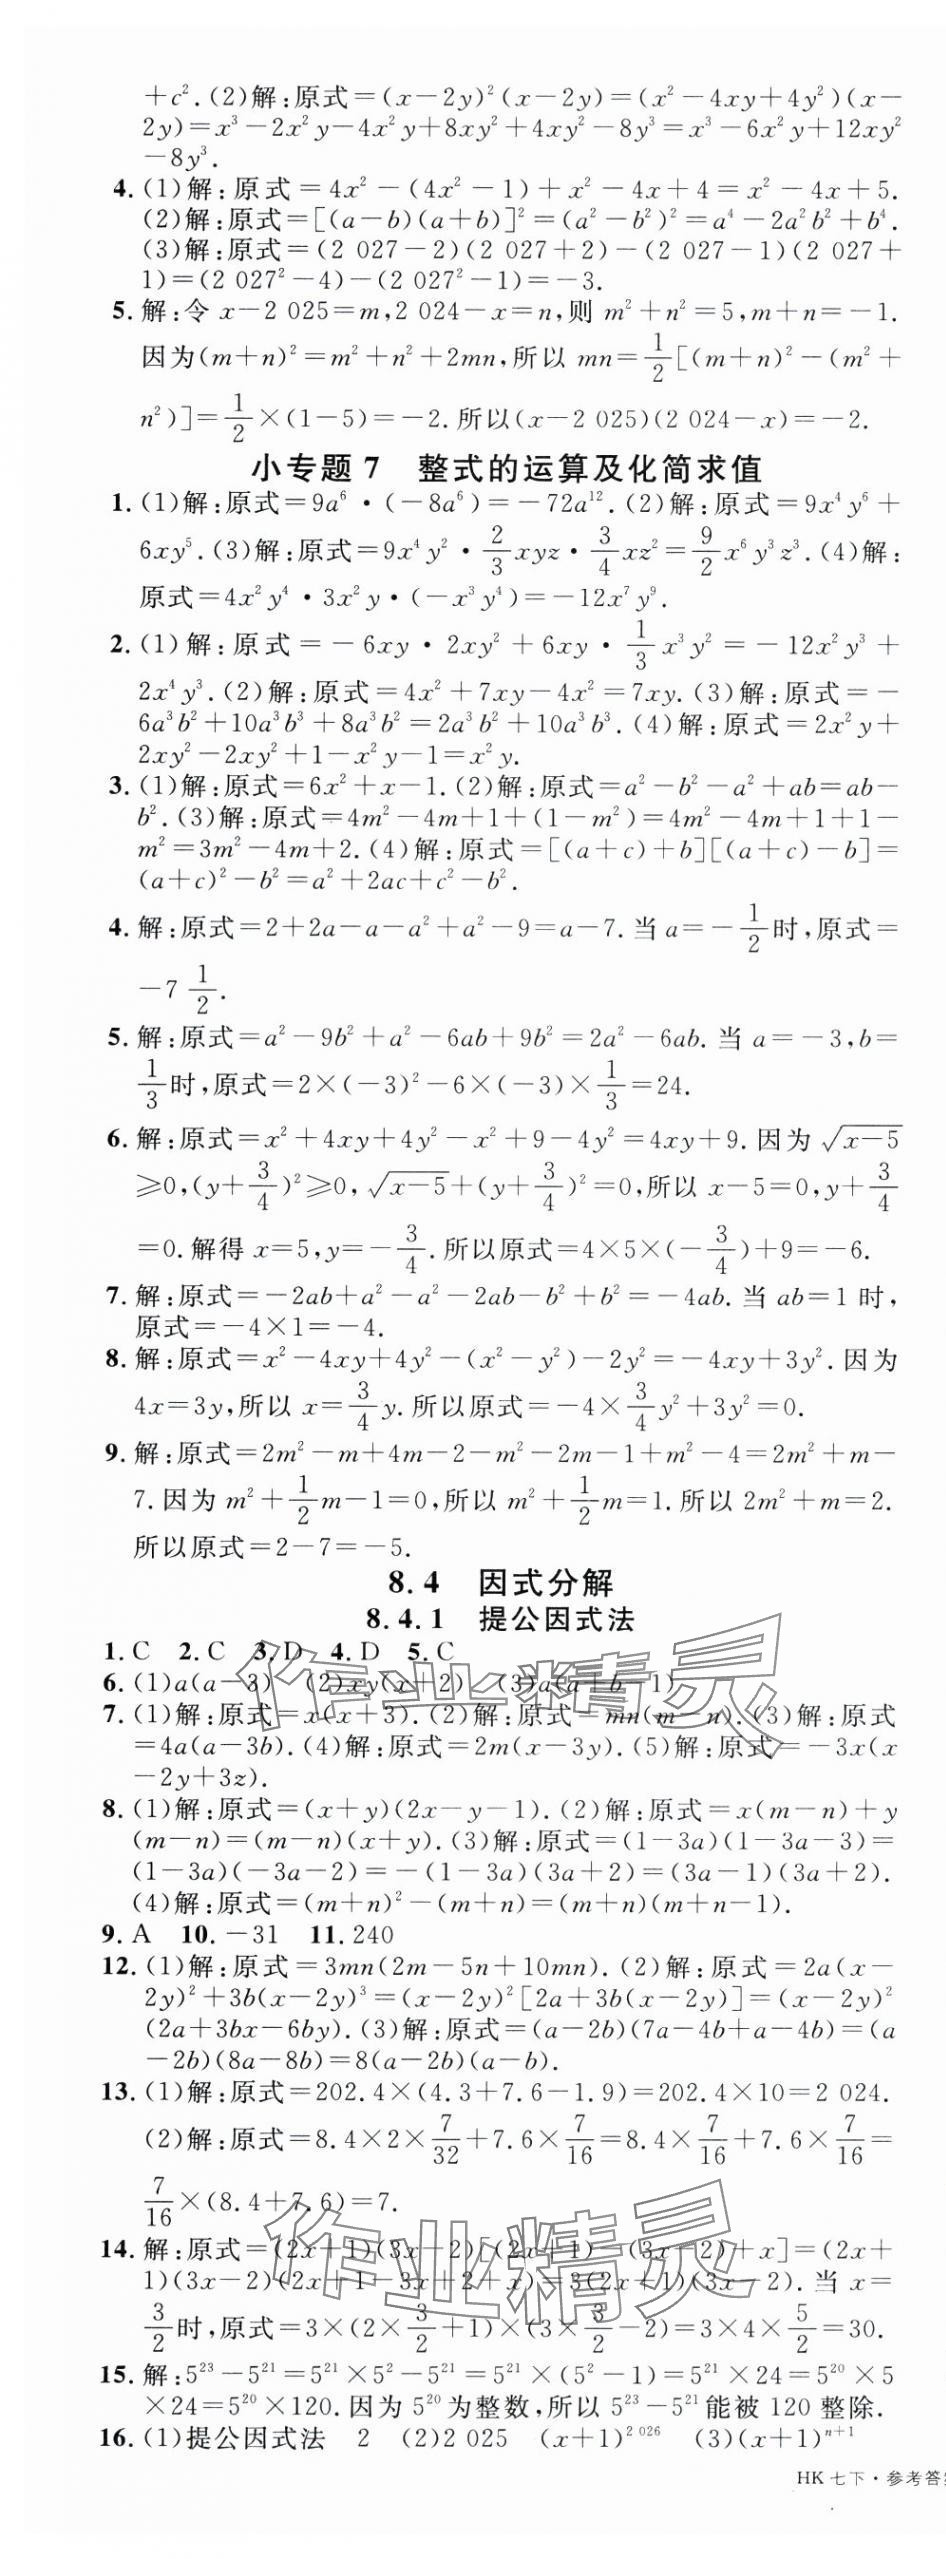 +c².(2)解:原式=(x-2y)²(x-2y)=(x²-4xy+4y²)(x-
2y)=x³-2x²y-4x²y+8xy²+4xy²-8y³=x³-6x²y+12xy²
-8y³.
4.(1)解:原式=4x²-(4x²-1)+x²-4x+4=x²-4x+5.
(2)解:原式=[(a-b)(a+b)]²=(a²-b²)²=a⁴-2a²b²+b⁴.
(3)解:原式=(2 027-2)(2 027+2)-(2 027-1)(2 027+
1)=(2 027²-4)-(2 027²-1)=-3.
5.解:令 x-2 025=m,2 024-x=n,则 m²+n²=5,m+n=-1.
因为(m+n)²=m²+n²+2mn,所以 mn=1/2[(m+n)²-(m²+
n²)]=1/2×(1-5)=-2.所以(x-2 025)(2 024-x)=-2.
小专题 7 整式的运算及化简求值
1.(1)解:原式=9a⁶·(-8a⁶)=-72a¹².(2)解:原式=9x⁴y⁶+
6xy⁵.(3)解:原式=9x⁴y²·2/3xyz·3/4xz²=9/2x⁶y³z³.(4)解:
原式=4x²y⁴·3x²y·(-x³y⁴)=-12x⁷y⁹.
2.(1)解:原式=-6xy·2xy²+6xy·1/3x³y²=-12x²y³+
2x⁴y³.(2)解:原式=4x²+7xy-4x²=7xy.(3)解:原式=-
6a³b²+10a³b³+8a³b²=2a³b²+10a³b³.(4)解:原式=2x²y+
2xy²-2xy²+1-x²y-1=x²y.
3.(1)解:原式=6x²+x-1.(2)解:原式=a²-b²-a²+ab=ab-
b².(3)解:原式=4m²-4m+1+(1-m²)=4m²-4m+1+1-
m²=3m²-4m+2.(4)解:原式=[(a+c)+b][(a+c)-b]=
(a+c)²-b²=a²+2ac+c²-b².
4.解:原式=2+2a-a-a²+a²-9=a-7.当 a=-1/2时,原式=
-7 1/2.
5.解:原式=a²-9b²+a²-6ab+9b²=2a²-6ab.当 a=-3,b=
1/3时,原式=2×(-3)²-6×(-3)×1/3=24.
6.解:原式=x²+4xy+4y²-x²+9-4y²=4xy+9.因为√(x-5)
≥0,(y+3/4)²≥0,√(x-5)+(y+3/4)²=0,所以 x-5=0,y+3/4
=0.解得 x=5,y=-3/4.所以原式=4×5×(-3/4)+9=-6.
7.解:原式=-2ab+a²-a²-2ab-b²+b²=-4ab.当 ab=1 时,
原式=-4×1=-4.
8.解:原式=x²-4xy+4y²-(x²-y²)-2y²=-4xy+3y².因为
4x=3y,所以 x=3/4y.所以原式=-4×3/4y²+3y²=0.
9.解:原式=2m²-m+4m-2-m²-2m-1+m²-4=2m²+m-
7.因为 m²+1/2m-1=0,所以 m²+1/2m=1.所以 2m²+m=2.
所以原式=2-7=-5.
8.4 因式分解
8.4.1 提公因式法
1.C 2.C 3.D 4.D 5.C
6.(1)a(a-3) (2)xy(x+2) (3)a(a+b-1)
7.(1)解:原式=x(x+3).(2)解:原式=mn(m-n).(3)解:原式
=4a(a-3b).(4)解:原式=2m(x-3y).(5)解:原式=-3x(x
-2y+3z).
8.(1)解:原式=(x+y)(2x-y-1).(2)解:原式=x(m-n)+y
(m-n)=(m-n)(x+y).(3)解:原式=(1-3a)(1-3a-3)=
(1-3a)(-3a-2)=-(1-3a)(3a+2)=(3a-1)(3a+2).
(4)解:原式=(m+n)²-(m+n)=(m+n)(m+n-1).
9.A 10.-31 11.240
12.(1)解:原式=3mn(2m-5n+10mn).(2)解:原式=2a(x-
2y)²+3b(x-2y)³=(x-2y)²[2a+3b(x-2y)]=(x-2y)²
(2a+3bx-6by).(3)解:原式=(a-2b)(7a-4b+a-4b)=(a
-2b)(8a-8b)=8(a-2b)(a-b).
13.(1)解:原式=202.4×(4.3+7.6-1.9)=202.4×10=2 024.
(2)解:原式=8.4×2×7/32+7.6×7/16=8.4×7/16+7.6×7/16=
7/16×(8.4+7.6)=7.
14.解:原式=(2x+1)(3x-2)[(2x+1)-(3x-2)+x]=(2x+
1)(3x-2)(2x+1-3x+2+x)=3(2x+1)(3x-2).当 x=
3/2时,原式=3×(2×3/2+1)×(3×3/2-2)=3×4×5/2=30.
15.解:5²³-5²¹=5²¹×5²-5²¹=5²¹×(5²-1)=5²¹×24=5²⁰×5
×24=5²⁰×120.因为 5²⁰为整数,所以 5²³-5²¹能被 120 整除.
16.(1)提公因式法 2 (2)2 025 (x+1)²⁰²⁶ (3)(x+1)ⁿ⁺¹
HK 七下·参考答案
作业精灵
作业精灵